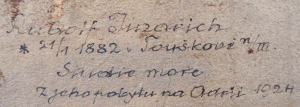 Rudolf Juzarich
* 21/1 1882 v Touškově n/M.
Studie moře
z jeho pobytu na Adrii 1924